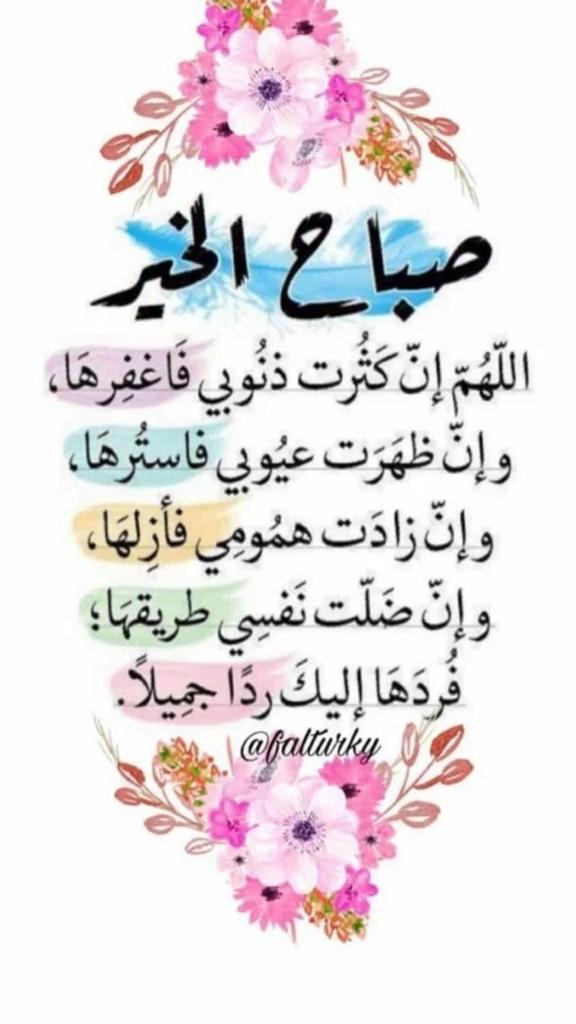 صباح الخير
اللّهُمّ إنّ كَثُرت ذنُوبي فَاغفِرهَا،
وإنّ ظهَرَت عيُوبي فاستُرهَا،
وإنّ زادَت همُومِي فأزِلهَا،
وإنّ ضَلّت نَفسِي طريقهَا؛
فُردَهَا إليكَ ردًا جمِيلاً.
@falturky